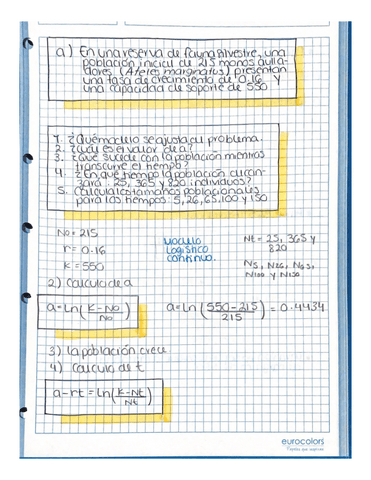 a) En una reserva de fauna silvestre, una
población inicial de 215 monos aulla-
dores (Ateles marginatus) presentan
una tasa de crecimiento de 0.16 y
una capacidad de soporte de 550
1. ¿Qué modelo se ajusta al problema.
2. ¿Cuál es el valor de a?
3. ¿Qué sucede con la población mientras
transcurre el tiempo?
4. ¿En qué tiempo la población alcan-
zará: 25, 365 y 820 individuos?
5. Calcula los tamaños poblacionales
para los tiempos: 5, 26, 65, 100 y 150
No = 215
r = 0.16
K = 550
Modelo
logístico
continuo.
Nt = 25, 365 y
820
N5, N26, N65,
N100 y N150
2) Calculo de a
a = Ln(K-No/No)
a = Ln(550-215/215) = 0.4434
3) la población crece.
4) Calculo de t
a-rt = Ln(K-Nt/Nt)
eurocolors